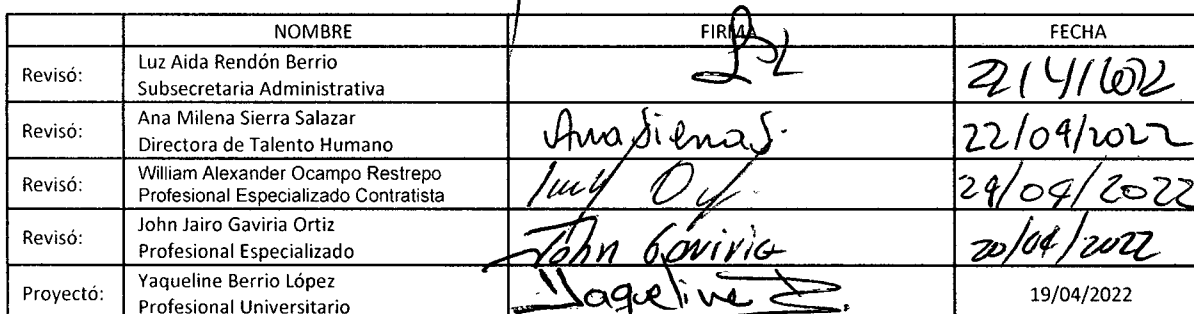 NOMBRE FIRMA FECHA
Revisó: Luz Aida Rendón Berrio
Subsecretaria Administrativa
22/4/2022
Revisó: Ana Milena Sierra Salazar
Directora de Talento Humano
Ana Sierra S. 22/04/2022
Revisó: William Alexander Ocampo Restrepo
Profesional Especializado Contratista
/04/2022
Revisó: John Jairo Gaviria Ortiz
Profesional Especializado
John Gaviria 20/04/2022
Proyectó: Yaqueline Berrio López
Profesional Universitario
Yaqueline B. 19/04/2022